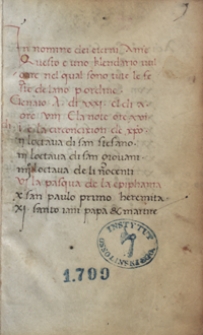 In nomine dei eterni Ame
Questo e uno kalendario vul
gare nel qual sono tute le fe
ste de lano p ordine
Genaio A di xxxi el di a
ore viii La note ore xvi
la circoncixion de xpo
in loctaua di san stefano
in loctaua di san giovani
in loctaua de li inocenti
vi la pasqua de la epiphania
x san paulo primo heremita
xi santo iani papa & martire
INSTYTUT
OSSOLIŃSKICH
1.799